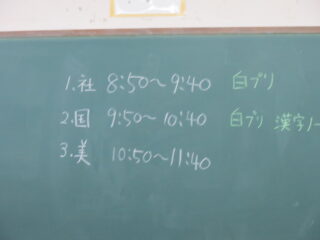 1.社 8:50〜9:40 白プリ
2.国 9:50〜10:40 白プリ 漢字ノー
3.美 10:50〜11:40